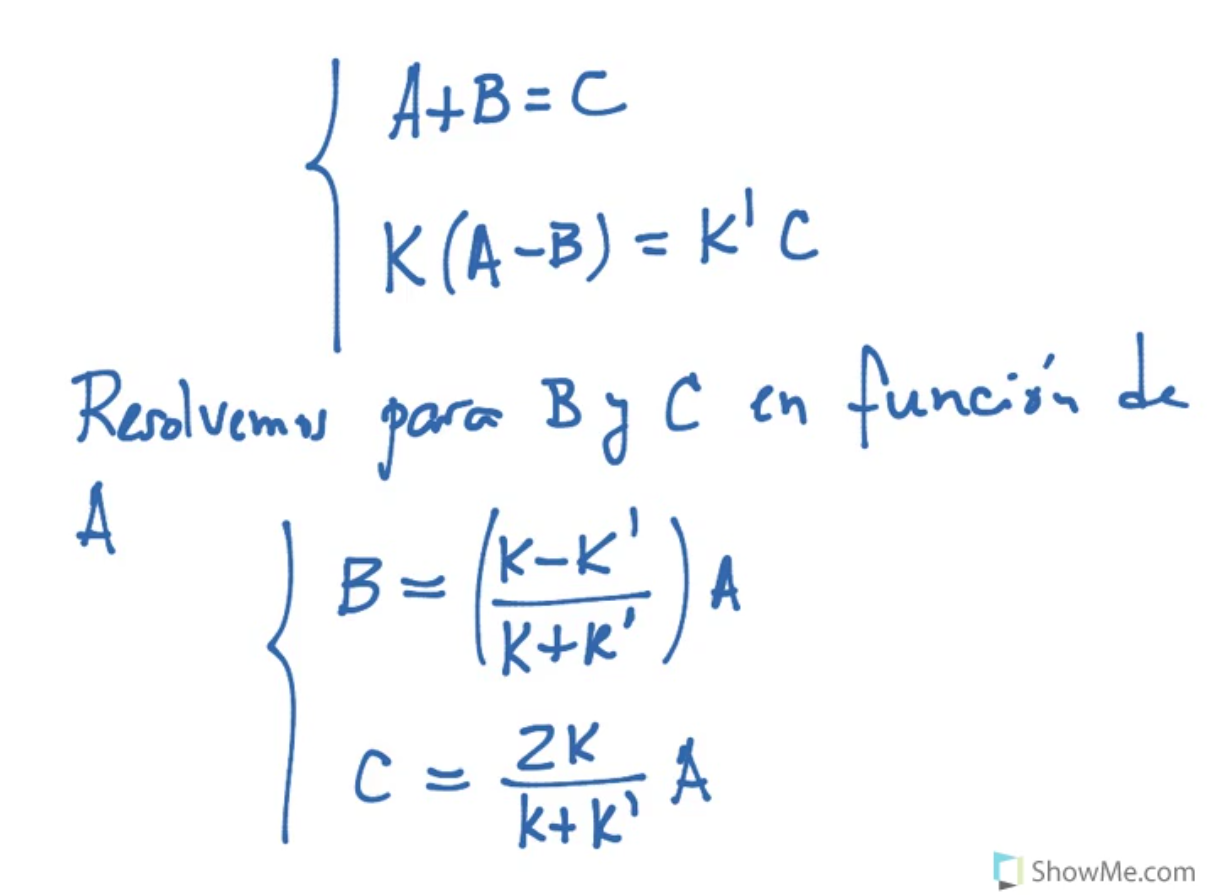 A+B=C
K(A-B)=K'C
Resolvemos para B y C en función de
A
B=(K-K'/K+K')A
C=2K/K+K' A
ShowMe.com